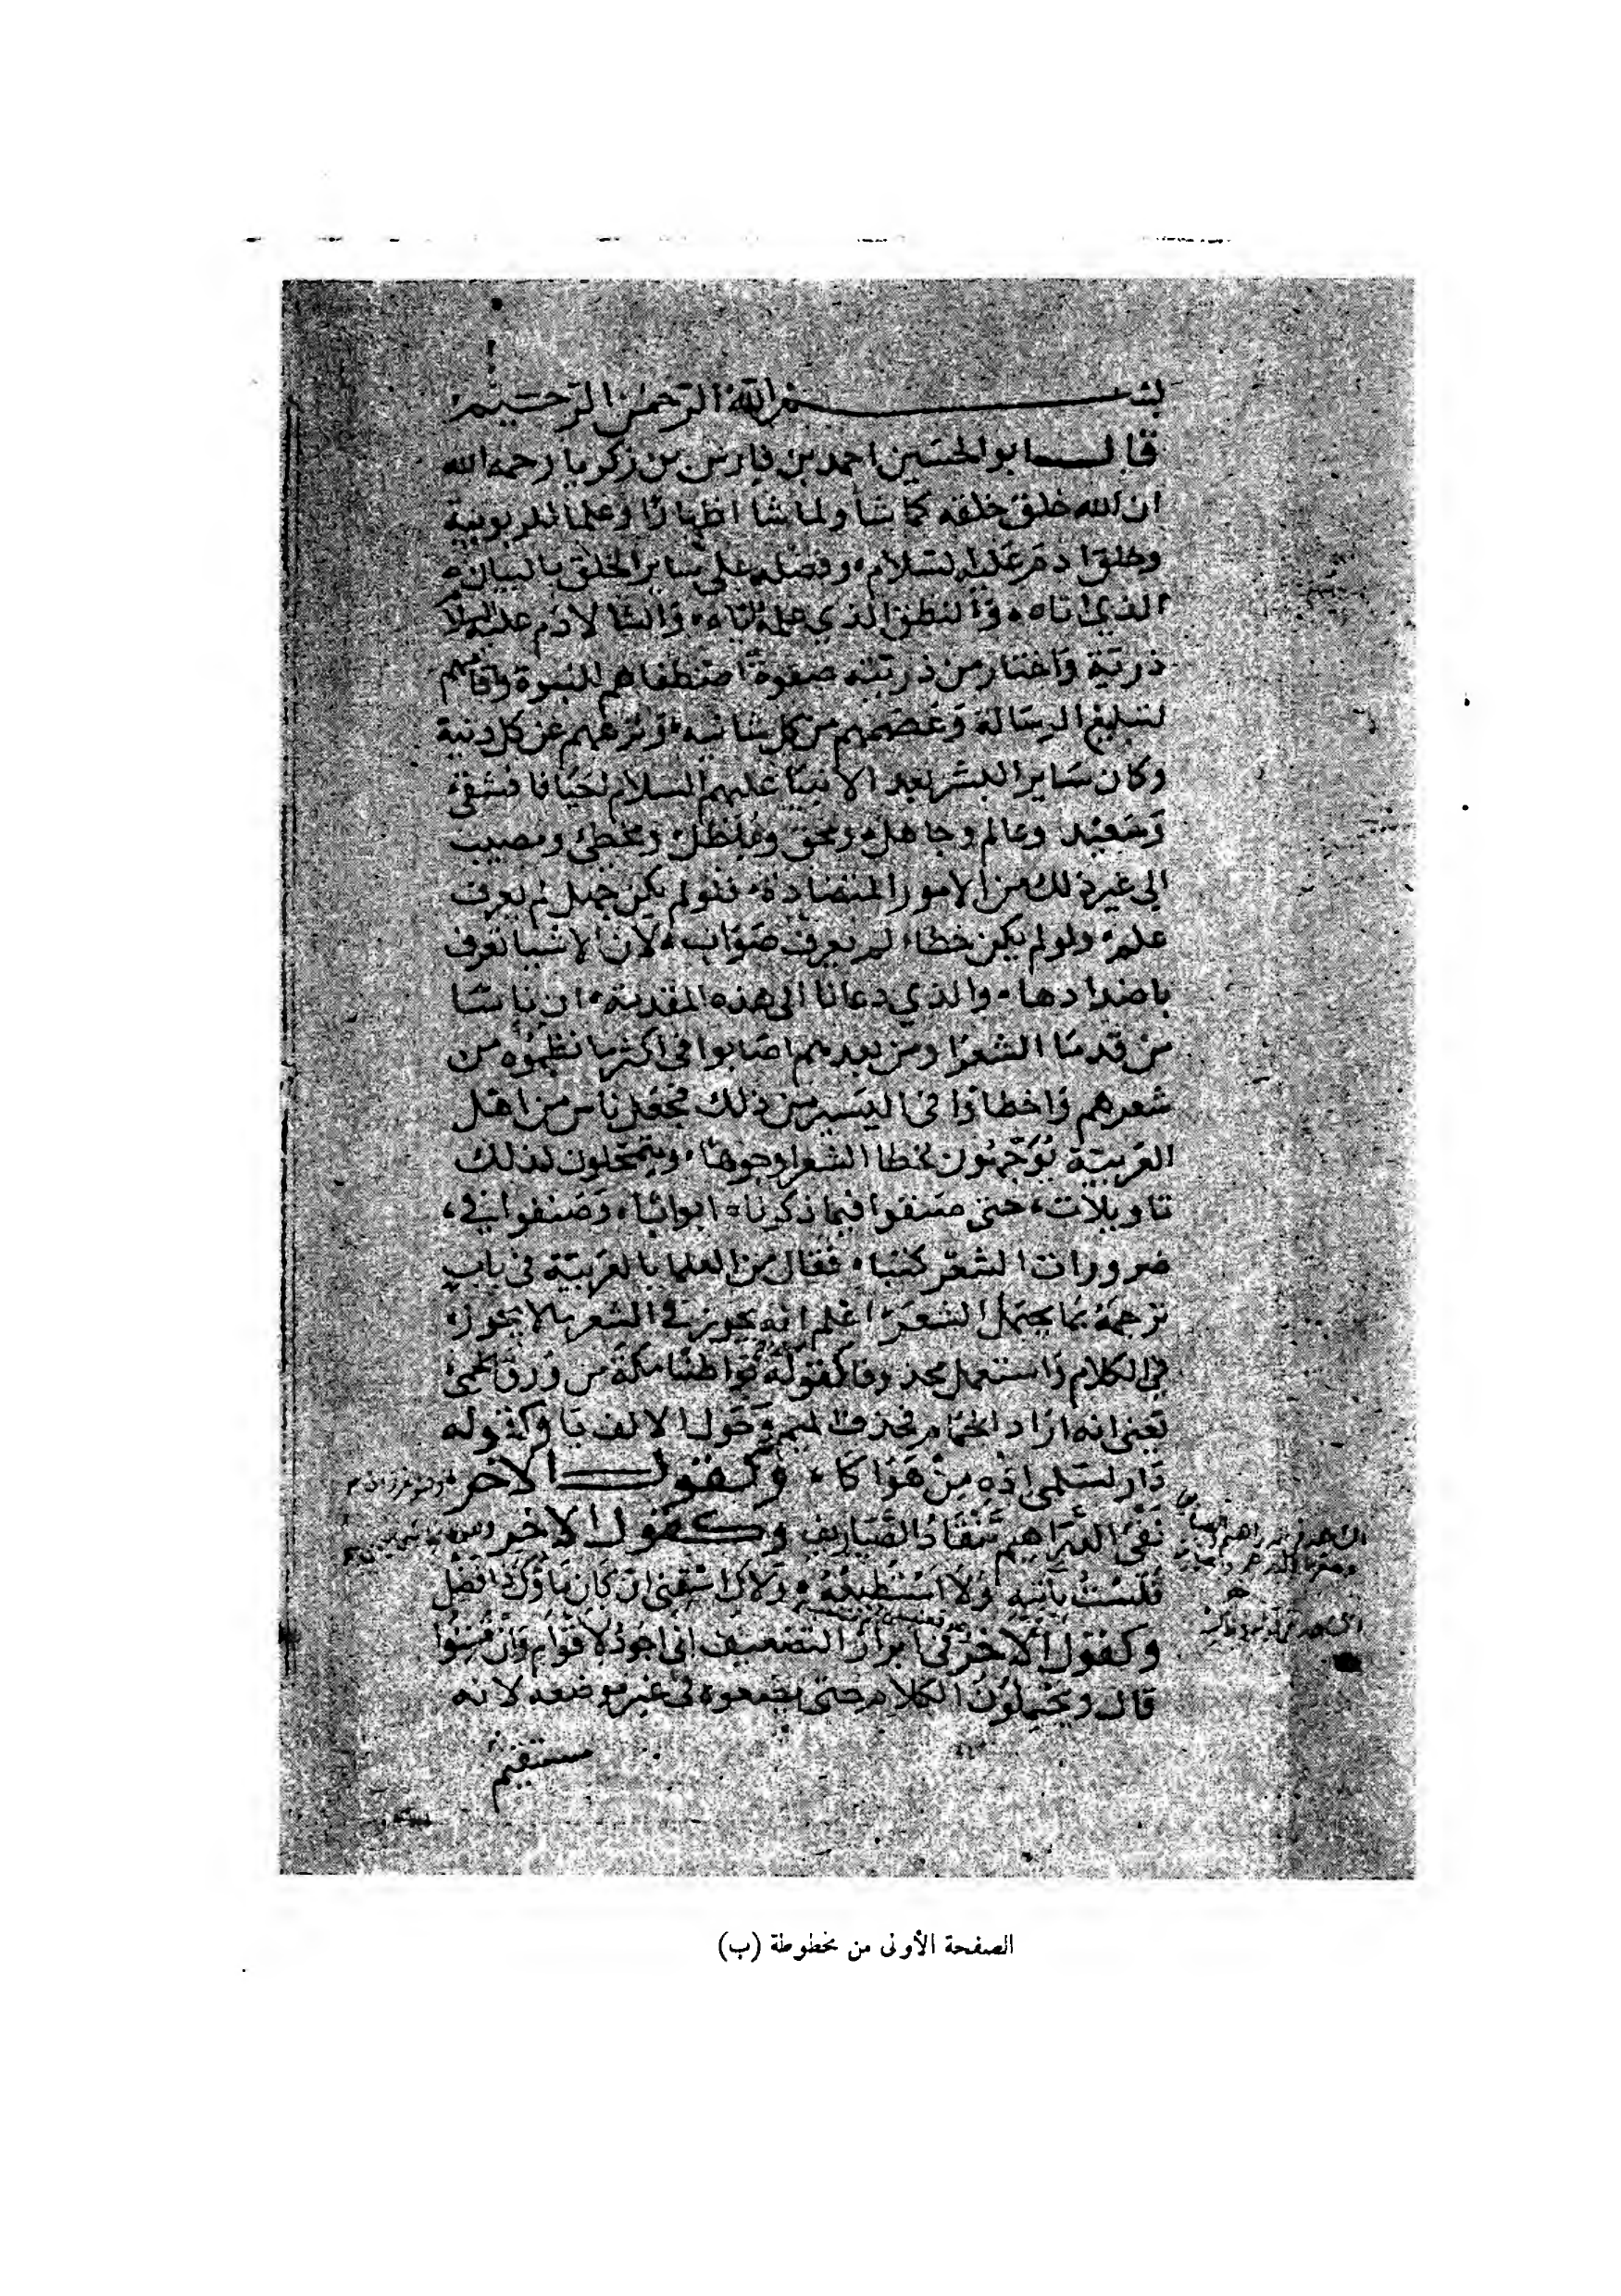 بسم الله الرحمن الرحيم
قال ابو الحسين احمد بن فارس بن زكريا رحمه الله
ان الله خلق خلقه كما شا ولما شا اظهارًا وعلما للربوبية
وخلق ادم عليه السلام وفضله على ساير الخلق بالبيان
الذي اتاه والنطق الذي علمه اياه وانشا لادم عليه السلا
ذرية واختار من ذريته صفوة اصطفاهم للنبوة واقامهم
لتبليغ الرسالة وعصمهم من كل شائبة ونزههم عن كل دنية
وكان ساير البشر بعد الانبيا عليهم السلام احيانا فشقي
وسعيد وعالم وجاهل ومحق ومبطل ومخطئ ومصيب
الى غير ذلك من الامور المتضادة فلو لم يكن جهل لم يعرف
علم ولو لم يكن خطا لم يعرف صواب لان الاشيا تعرف
باضدادها والذي دعانا الى هذه المقدمة ان ناسًا
من قدما الشعرا ومن بعدهم اصابوا في اكثر ما نظموه من
شعرهم واخطاوا في اليسير من ذلك فجعل ناس من اهل
العربية يوجهون لخطا الشعرا وجوهًا ويتمحلون لذلك
تاويلات حتى صنفوا فيما ذكرناه ابوابًا وصنفوا في
ضرورات الشعر كتبا فقال من العلما بالعربية في باب
ترجمة بما يحتمل الشعر اعلم انه يجوز في الشعر ما لا يجوز
في الكلام واستعمل محذوفا كقوله قواطنا مكة من ورق الحمى
يعني انه اراد الحمام فحذف الميم وحول الالف يا وكقوله
دار لسلمى اذه من هواكا وكقول الاخر
نفي الدراهيم تنقاد الصياريف وكقول الاخر
فلست باتيه ولا استطيعه ولاك اسقني ان كان ماؤك ذا فضل
وكقول الاخر في ابراز التضعيف اني اجود لاقوام وان ضننوا
قال ويحتملون الكلام حتى يضعوه في غير موضعه لانه
مستقيم
الصفحة الأولى من مخطوطة (ب)